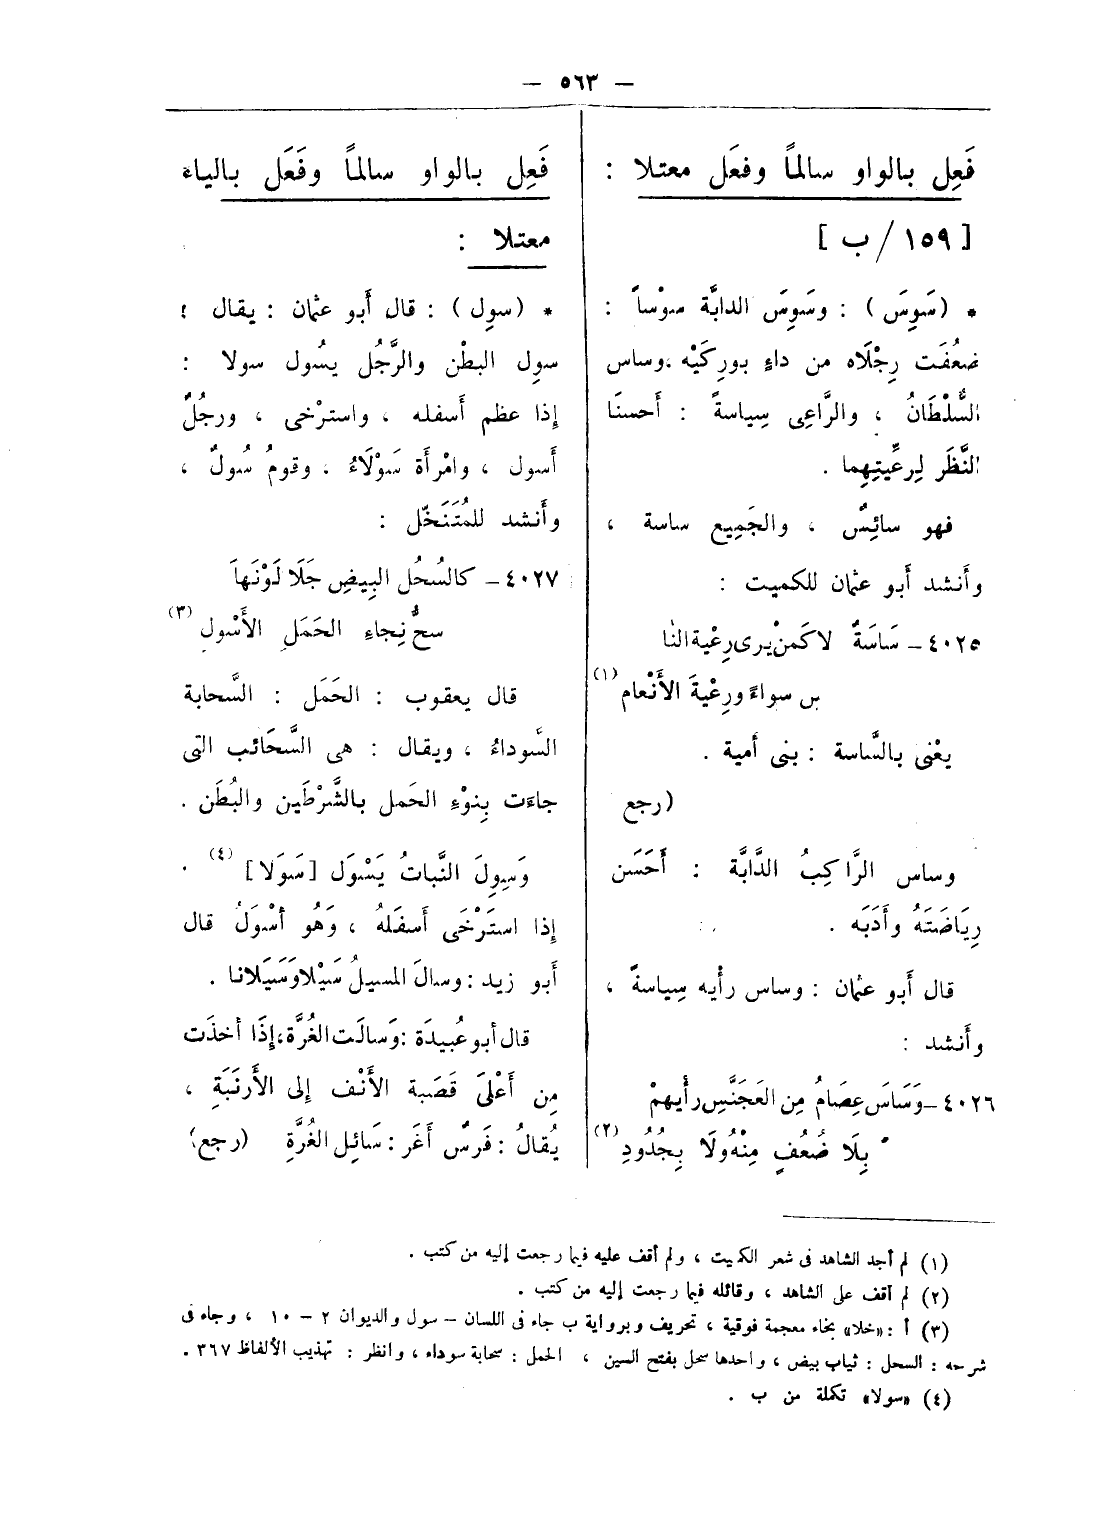 — ٥٦٣ —
فَعِل بالواو سالمًا وفعَل معتلا :
[ ١٥٩/ ب ]
* (سَوِسَ) : وسَوِسَ الدابَّة سوْساً :
ضعُفَت رِجْلَاه من داءٍ بوركَيْه ، وساس
السُّلْطَانُ ، والرَّاعِى سِياسةً : أَحسنَا
النَّظَر لِرعِّيتِهِما .
فهو سائِسٌ ، والجَمِيع ساسة ،
وأَنشد أَبو عثمان للكميت :
٤٠٢٥ ـ سَاسَةٌ لا كَمنْ يرى رِعْية النا
س سواءً ورِعْيةَ الأَنْعام (١)
يعْنى بالسَّاسة : بنى أُمية .
(رجع
وساس الرَّاكِبُ الدَّابَّة : أَحَسَن
رِيَاضَتَهُ وأَدَبَه .
قال أَبو عثمان : وساس رأْيه سِياسةً ،
وأَنشد :
٤٠٢٦ ـ وَسَاسَ عِصَامُ مِن العَجَنَّسِ رأْيهمْ
بِلَا ضُعُفٍ مِنْهُ ولَا بِجُدُودِ (٢)
فَعِل بالواو سالمًا وفَعَل بالياء
معتلا :
* (سوِل) : قال أَبو عثمان : يقال :
سوِل البطْن والرَّجُل يسُول سولا :
إِذا عظم أَسفله ، واسترْخى ، ورجُلٌ
أَسول ، وامْرأَة سَوْلَاءُ ، وقومُ سُولٌ ،
وأَنشد للمُتَنَخّل :
٤٠٢٧ ـ كالسُحُل البِيضِ جَلَا لَوْنَهاَ
سحُّ نِجاءِ الحَمَلِ الأَسْولِ (٣)
قال يعقوب : الحَمَل : السَّحابة
السَّوداءُ ، ويقال : هى السَّحَائب التى
جاءَت بِنوْءِ الحَمل بالشَّرْطَين والبُطَن .
وَسِولَ النَّباتُ يَسْوَل [سَوَلا] (٤) .
إِذا استَرْخَى أَسفَلهُ ، وَهُو أَسْوَلُ قال
أَبو زيد : وسالَ المسيلُ سَيْلا وَسَيَلانا .
قال أَبو عُبيدَة : وَسالَت الغُرَّة ، إِذَا أخذَت
مِن أَعْلىَ قَصَبة الأَنْف إلى الأَرنَبَةِ ،
يُقالُ : فَرسٌ أَغَر : سَائِل الغُرَّةِ (رجع)
(١) لم أجد الشاهد فى شعر الكميت ، ولم أقف عليه فيما رجعت إليه من كتب .
(٢) لم أقف على الشاهد ، وقائله فيما رجعت إليه من كتب .
(٣) أ : «خلا» بخاء معجمة فوقية ، تحريف وبرواية ب جاء فى اللسان – سول والديوان ٢ – ١٠ ، وجاء فى
شرحه : السحل : ثياب بيض ، واحدها سحل بفتح السين ، الحمل : سحابة سوداء ، وانظر : تهذيب الألفاظ ٣٦٧ .
(٤) «سولا» تكملة من ب .